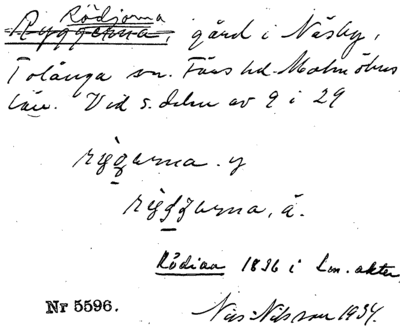 Rödjorna
Ryggerna, gård i Näsby,
Tolånga sn. Färs hd. Malmöhus
län. Vid s. delen av 9 i 29
riggarna. y
rigjarna, ä.
Rödiaa 1836 i Lm. akter
Nr 5596.
Nils Nilsson 1934.